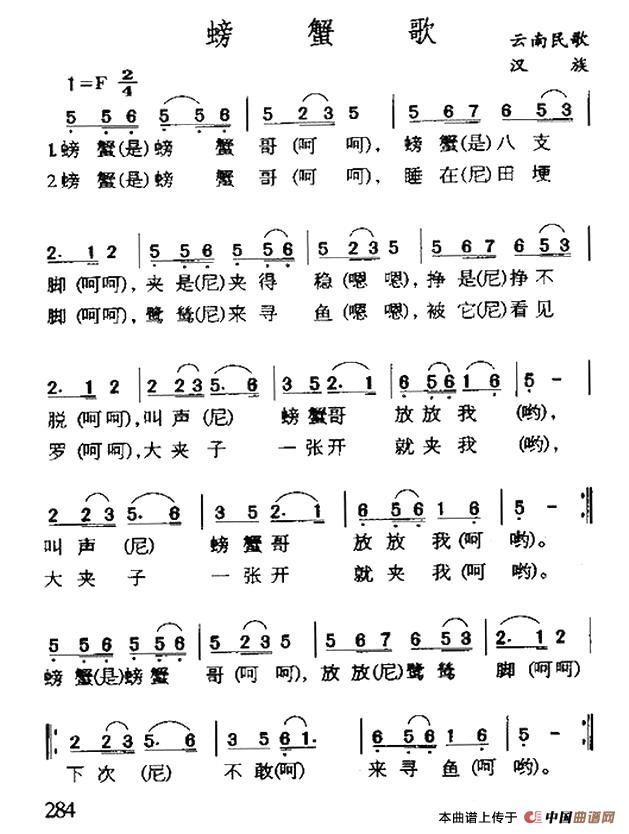 螃蟹歌
云南民歌
汉 族
1=F 2/4
5 5 6 5 5 6 | 5 2 3 5 | 5 6 7 6 5 3 |
1.螃 蟹(是)螃 蟹 哥(呵 呵), 螃 蟹(是)八 支
2.螃 蟹(是)螃 蟹 哥(呵 呵), 睡 在(尼)田 埂
2. 1 2 | 5 5 6 5 5 6 | 5 2 3 5 | 5 6 7 6 5 3 |
脚(呵呵), 夹 是(尼)夹 得 稳(嗯 嗯), 挣 是(尼)挣 不
脚(呵呵), 鹭 鸶(尼)来 寻 鱼(嗯 嗯), 被 它(尼)看 见
2. 1 2 | 2 2 3 5. 6 | 3 5 2. 1 | 6 5 6 1 6 | 5 - |
脱(呵呵), 叫 声 (尼) 螃 蟹 哥 放 放 我 (哟),
罗(呵呵), 大 夹 子 一 张 开 就 夹 我 (哟),
2 2 3 5. 6 | 3 5 2. 1 | 6 5 6 1 6 | 5 - :||
叫 声 (尼) 螃 蟹 哥 放 放 我(呵 哟)。
大 夹 子 一 张 开 就 夹 我(呵 哟)。
5 5 6 5 5 6 | 5 2 3 5 | 5 6 7 6 5 3 | 2. 1 2 |
螃 蟹(是)螃 蟹 哥(呵 呵), 放 放(尼)鹭 鸶 脚(呵呵)
||: 2 2 3 5. 6 | 3 5 6 1 | 6 5 6 1 6 | 5 - :||
下 次 (尼) 不 敢(呵) 来 寻 鱼(呵 哟)。
284
本曲谱上传于 中国曲谱网